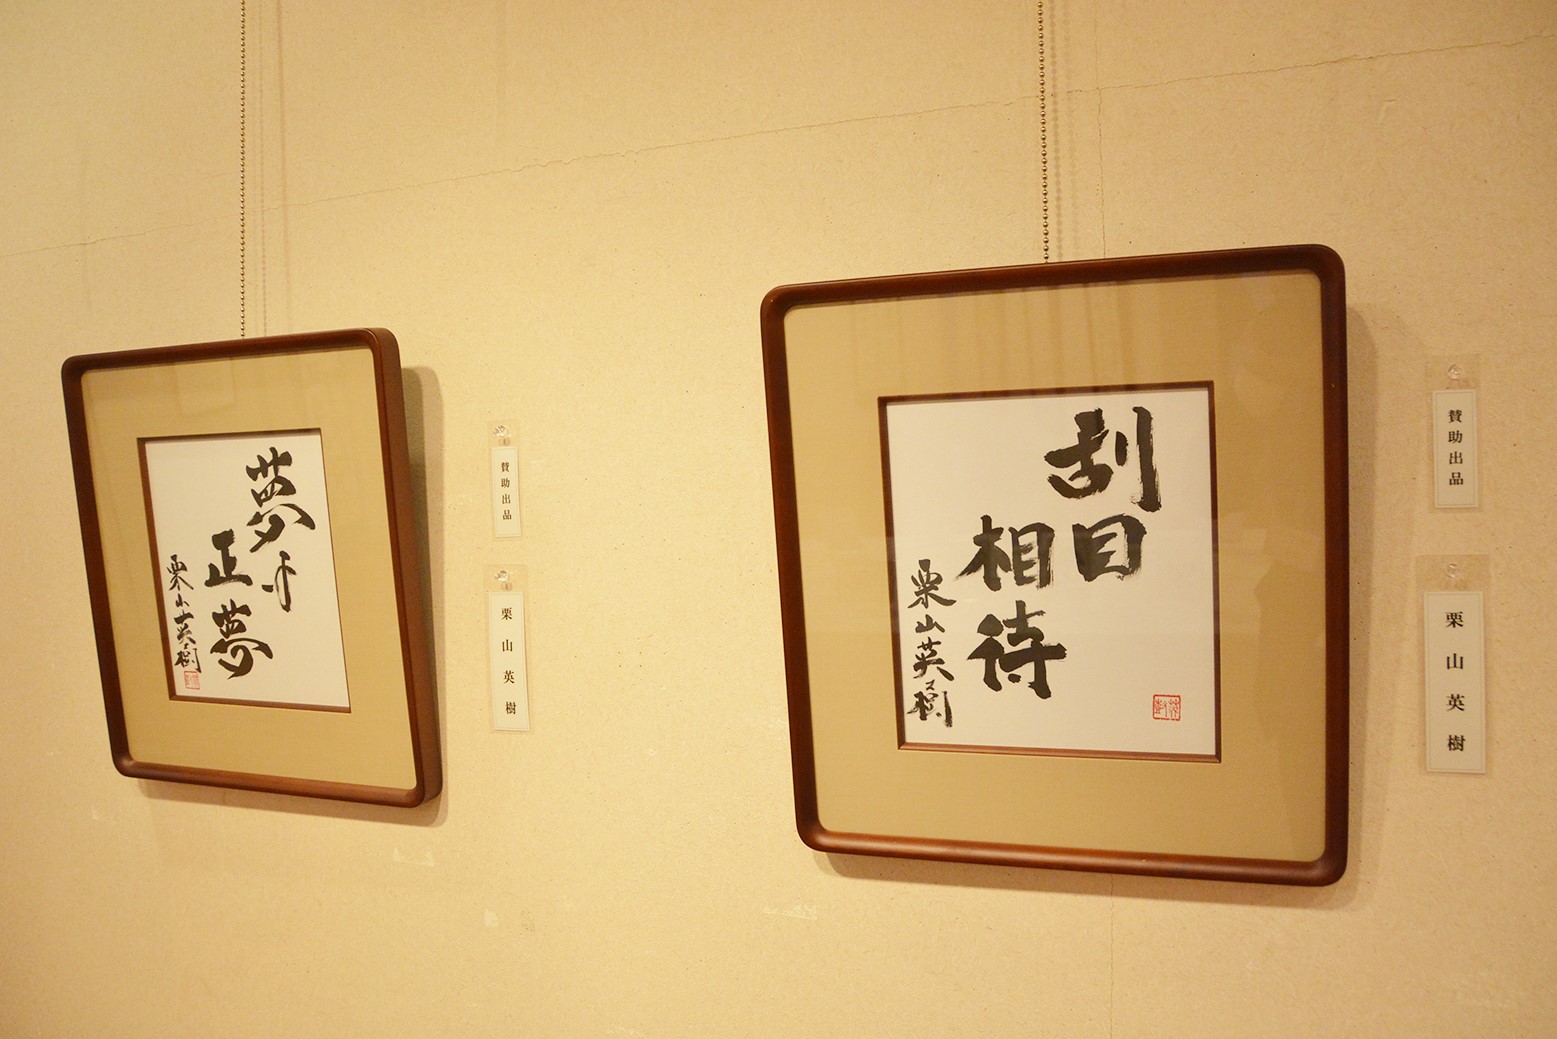 夢は
正夢
栗山英樹
賛助出品
栗山英樹
刮目
相待
栗山英樹
賛助出品
栗山英樹